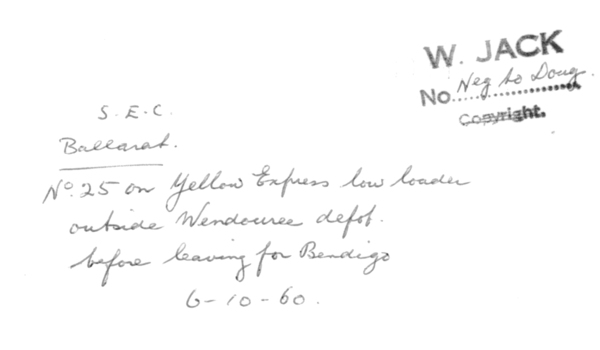 W. JACK
No. Neg to Doug.
Copyright.
S.E.C.
Ballarat.
No. 25 on Yellow Express low loader
outside Wendouree depot.
before leaving for Bendigo
6-10-60.